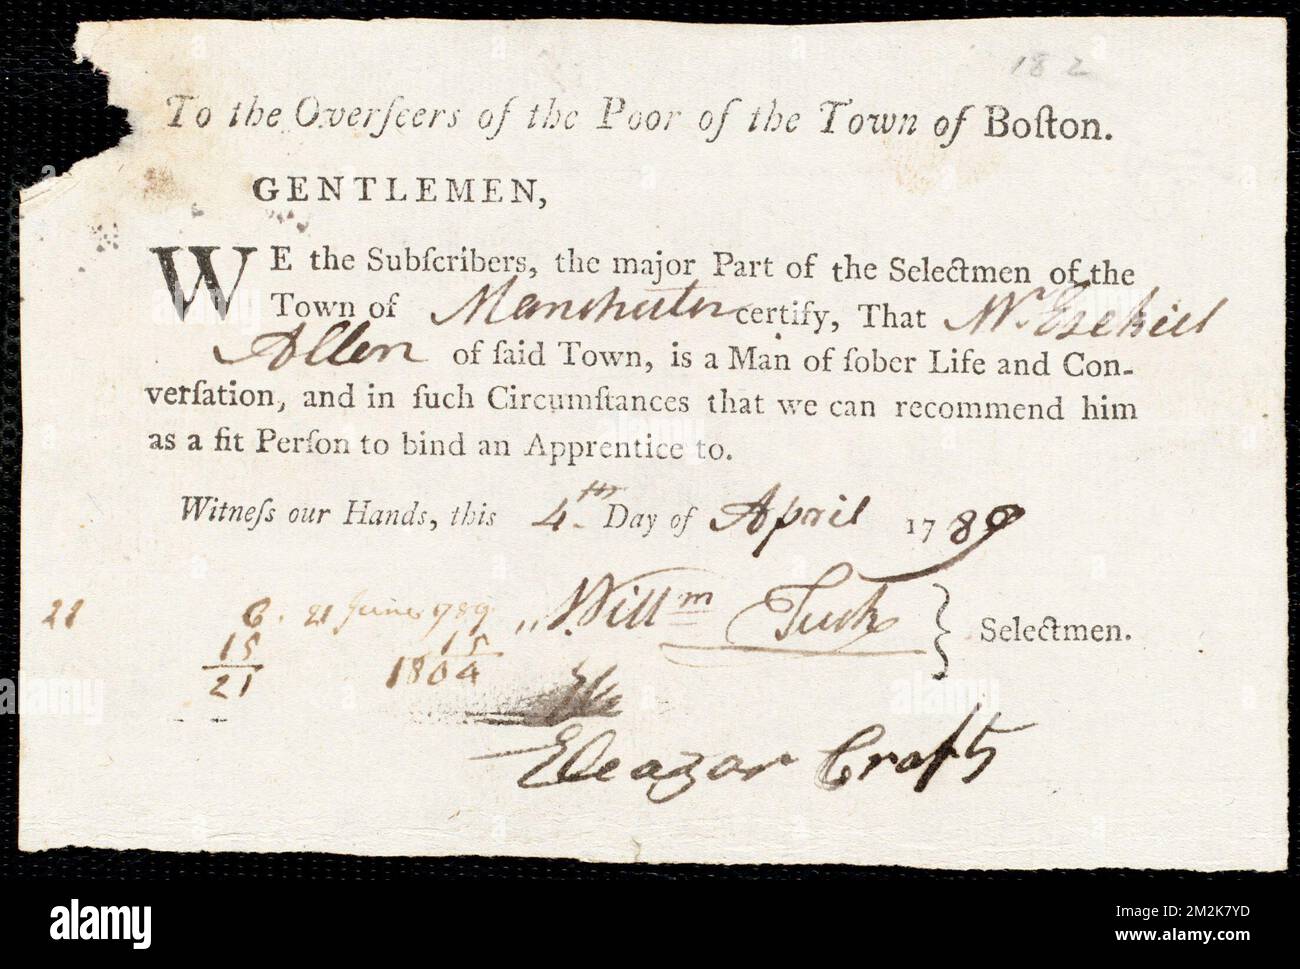 182
To the Overſeers of the Poor of the Town of Boſton.
GENTLEMEN,
WE the Subſcribers, the major Part of the Selectmen of the
Town of Manchester certify, That Mr. Ezekiel
Allen of ſaid Town, is a Man of ſober Life and Con-
verſation, and in ſuch Circumſtances that we can recommend him
as a fit Perſon to bind an Apprentice to.
Witneſs our Hands, this 4th. Day of April 1789
21 6. 21 June 1789 Willm Tuck } Selectmen.
15 15
21 1804
Ele
Eleazar Crafts
alamy
Image ID: 2M2K7YD
www.alamy.com